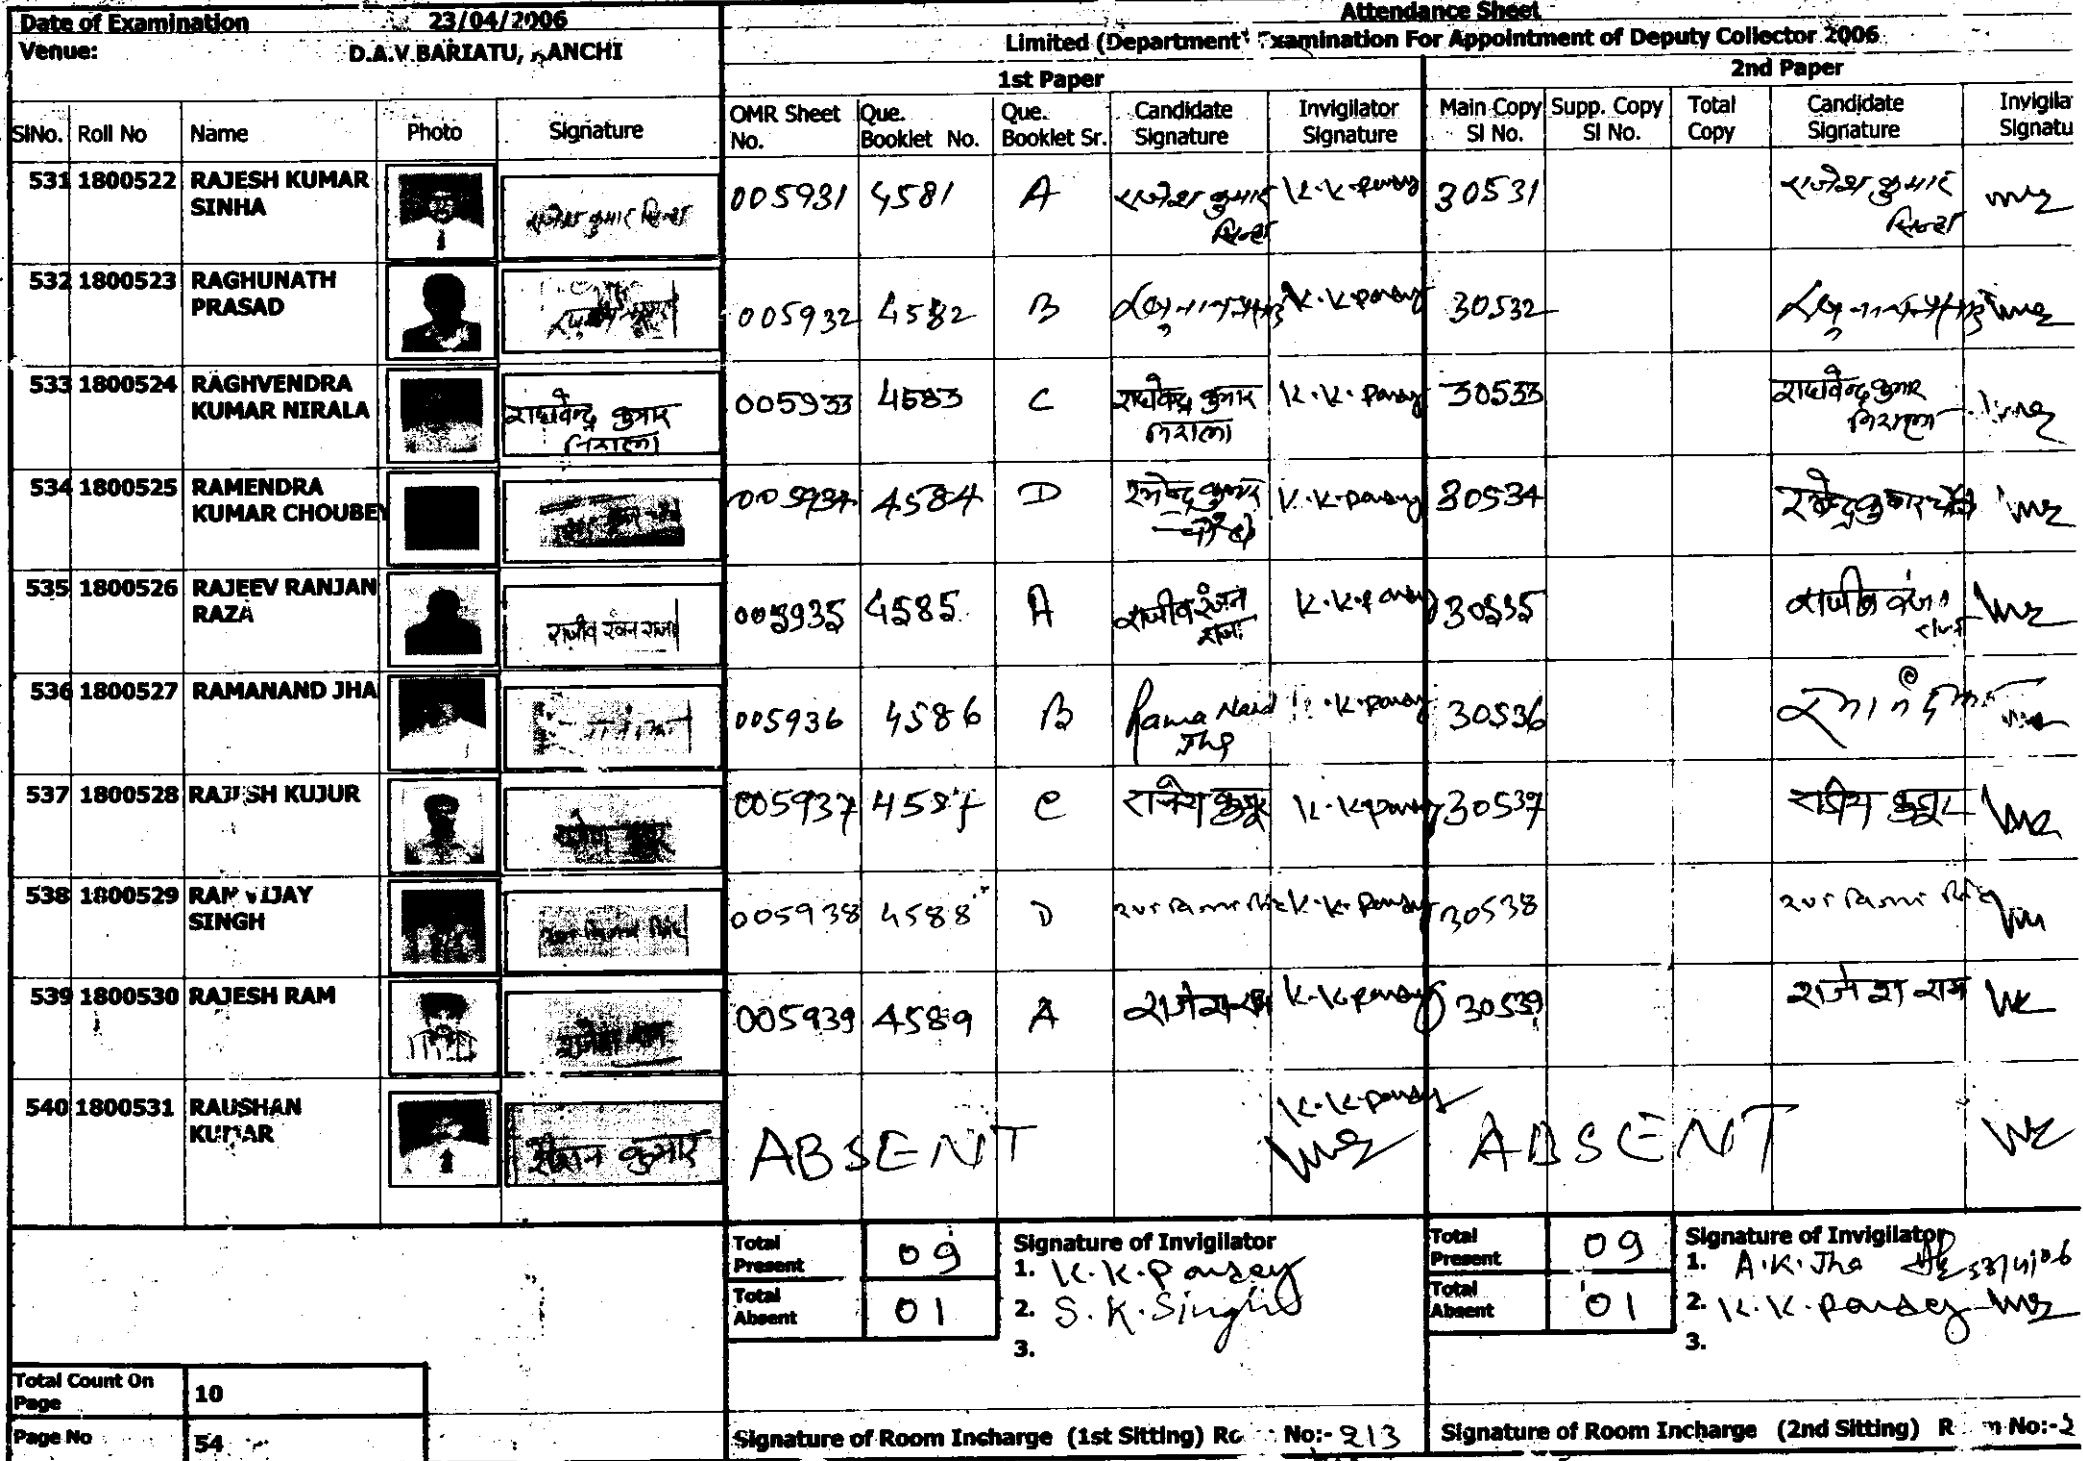 Date of Examination 23/04/2006
Venue: D.A.V.BARIATU, RANCHI
Attendance Sheet
Limited (Department Examination For Appointment of Deputy Collector 2006
1st Paper
2nd Paper
SlNo. Roll No Name Photo Signature OMR Sheet No. Que. Booklet No. Que. Booklet Sr. Candidate Signature Invigilator Signature Main Copy Sl No. Supp. Copy Sl No. Total Copy Candidate Signature Invigila Signatu
531 1800522 RAJESH KUMAR SINHA राजेश कुमार सिन्हा 005931 4581 A राजेश कुमार सिन्हा K.K.Pandey 30531 राजेश कुमार सिन्हा
532 1800523 RAGHUNATH PRASAD 005932 4582 B K.K.Pandey 30532
533 1800524 RAGHVENDRA KUMAR NIRALA राघवेन्द्र कुमार निराला 005933 4583 C राघवेन्द्र कुमार निराला K.K.Pandey 30533 राघवेन्द्र कुमार निराला
534 1800525 RAMENDRA KUMAR CHOUBEY 005934 4584 D रमेन्द्र कुमार चौबे K.K.Pandey 30534 रमेन्द्र कुमार चौबे
535 1800526 RAJEEV RANJAN RAZA राजीव रंजन राजा 005935 4585 A राजीव रंजन राजा K.K.Pandey 30535 राजीव रंजन राजा
536 1800527 RAMANAND JHA 005936 4586 B Rama Nand Jha K.K.Pandey 30536
537 1800528 RAJESH KUJUR राजेश कुजूर 005937 4587 C राजेश कुजूर K.K.Pandey 30537 राजेश कुजूर
538 1800529 RAM VIJAY SINGH राम विजय सिंह 005938 4588 D राम विजय सिंह K.K.Pandey 30538 राम विजय सिंह
539 1800530 RAJESH RAM राजेश राम 005939 4589 A राजेश राम K.K.Pandey 30539 राजेश राम
540 1800531 RAUSHAN KUMAR रौशन कुमार ABSENT K.K.Pandey ABSENT
Total Present 09 Signature of Invigilator Total Present 09 Signature of Invigilator
1. K.K.Pandey 1. A.K.Jha
Total Absent 01 2. S.K.Singh Total Absent 01 2. K.K.Pandey
3. 3.
Total Count On Page 10
Page No 54
Signature of Room Incharge (1st Sitting) No:- 213 Signature of Room Incharge (2nd Sitting) No:-2